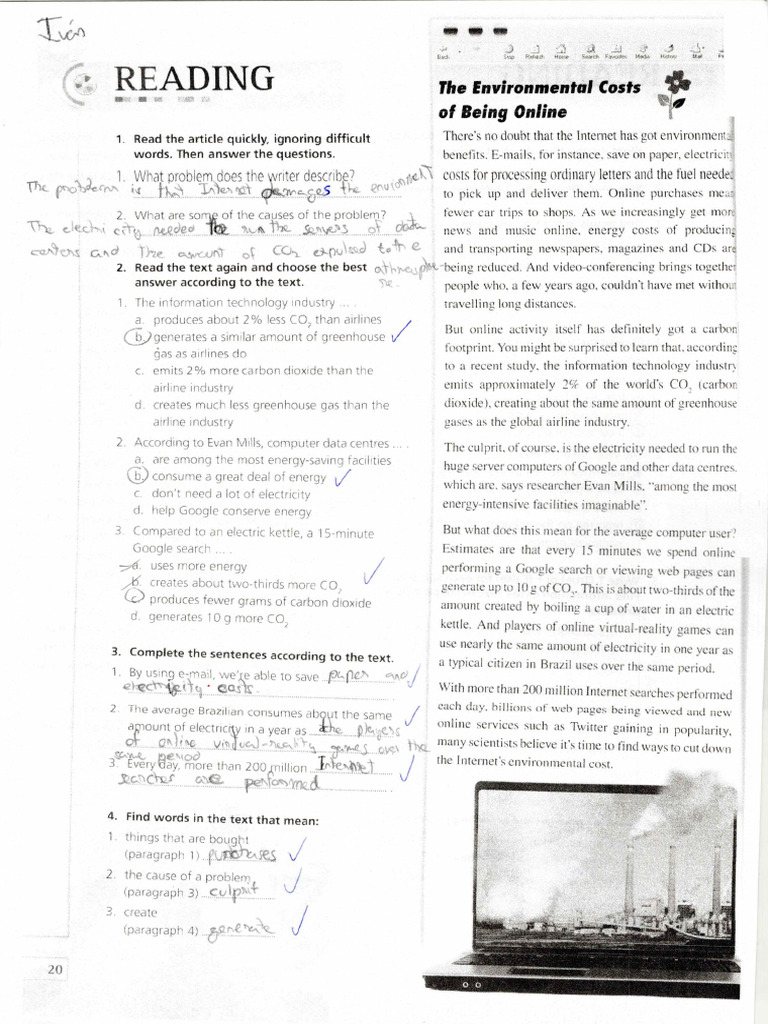 Iván
READING
1. Read the article quickly, ignoring difficult
words. Then answer the questions.
1. What problem does the writer describe?
The problem is that Internet damages the environment
2. What are some of the causes of the problem?
The electricity needed to run the servers of data
centers and the amount of CO2 expulsed to the
athmosphere.
2. Read the text again and choose the best
answer according to the text.
1. The information technology industry ... .
a. produces about 2% less CO2 than airlines
b. generates a similar amount of greenhouse
gas as airlines do
c. emits 2% more carbon dioxide than the
airline industry
d. creates much less greenhouse gas than the
airline industry
2. According to Evan Mills, computer data centres ... .
a. are among the most energy-saving facilities
b. consume a great deal of energy
c. don't need a lot of electricity
d. help Google conserve energy
3. Compared to an electric kettle, a 15-minute
Google search ... .
a. uses more energy
b. creates about two-thirds more CO2
c. produces fewer grams of carbon dioxide
d. generates 10 g more CO2
3. Complete the sentences according to the text.
1. By using e-mail, we're able to save paper and
electricity costs.
2. The average Brazilian consumes about the same
amount of electricity in a year as the players
of online virtual-reality games over the
same period
3. Every day, more than 200 million Internet
searches are performed
4. Find words in the text that mean:
1. things that are bought
(paragraph 1) purchases
2. the cause of a problem
(paragraph 3) culprit
3. create
(paragraph 4) generate
20
Back
Stop
Refresh
Home
Search
Favorites
Media
History
Mail
The Environmental Costs
of Being Online
There's no doubt that the Internet has got environmenta
benefits. E-mails, for instance, save on paper, electricity
costs for processing ordinary letters and the fuel needed
to pick up and deliver them. Online purchases mea
fewer car trips to shops. As we increasingly get more
news and music online, energy costs of producing
and transporting newspapers, magazines and CDs are
being reduced. And video-conferencing brings together
people who, a few years ago, couldn't have met without
travelling long distances.
But online activity itself has definitely got a carbon
footprint. You might be surprised to learn that, according
to a recent study, the information technology industry
emits approximately 2% of the world's CO2 (carbon
dioxide), creating about the same amount of greenhouse
gases as the global airline industry.
The culprit, of course, is the electricity needed to run the
huge server computers of Google and other data centres,
which are, says researcher Evan Mills, "among the most
energy-intensive facilities imaginable".
But what does this mean for the average computer user?
Estimates are that every 15 minutes we spend online
performing a Google search or viewing web pages can
generate up to 10 g of CO2. This is about two-thirds of the
amount created by boiling a cup of water in an electric
kettle. And players of online virtual-reality games can
use nearly the same amount of electricity in one year as
a typical citizen in Brazil uses over the same period.
With more than 200 million Internet searches performed
each day, billions of web pages being viewed and new
online services such as Twitter gaining in popularity,
many scientists believe it's time to find ways to cut down
the Internet's environmental cost.